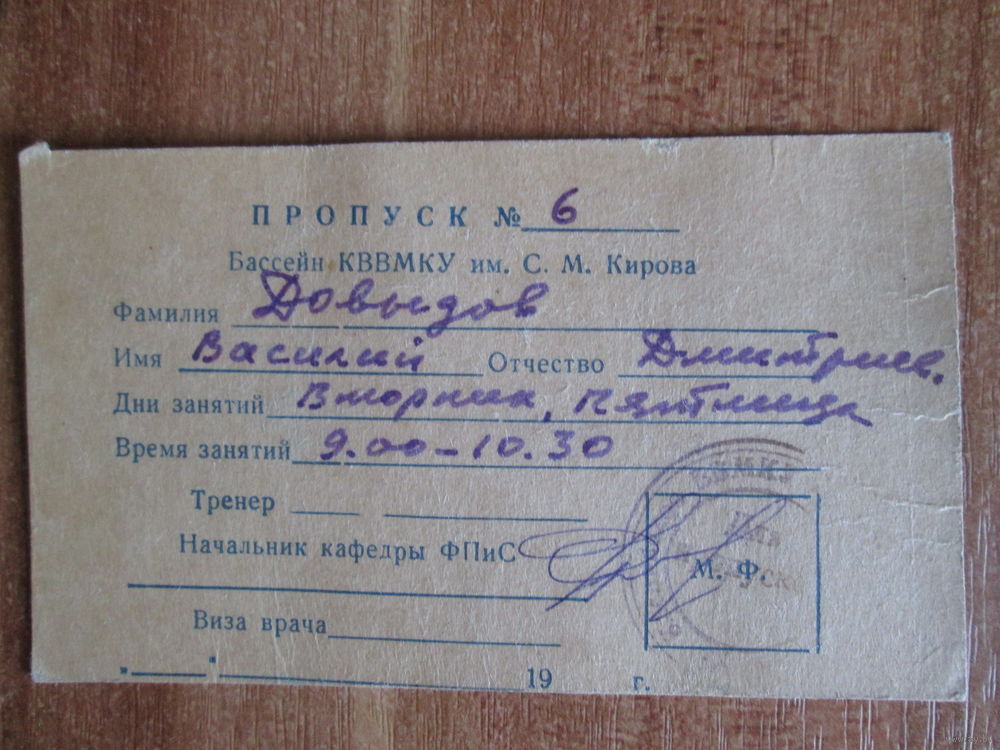 ПРОПУСК № 6
Бассейн КВВМКУ им. С. М. Кирова
Фамилия Довыдов
Имя Василий Отчество Дмитриев.
Дни занятий Вторник, пятница
Время занятий 9.00-10.30
Тренер
Начальник кафедры ФПиС
М. Ф.
Виза врача
" " 19 г.